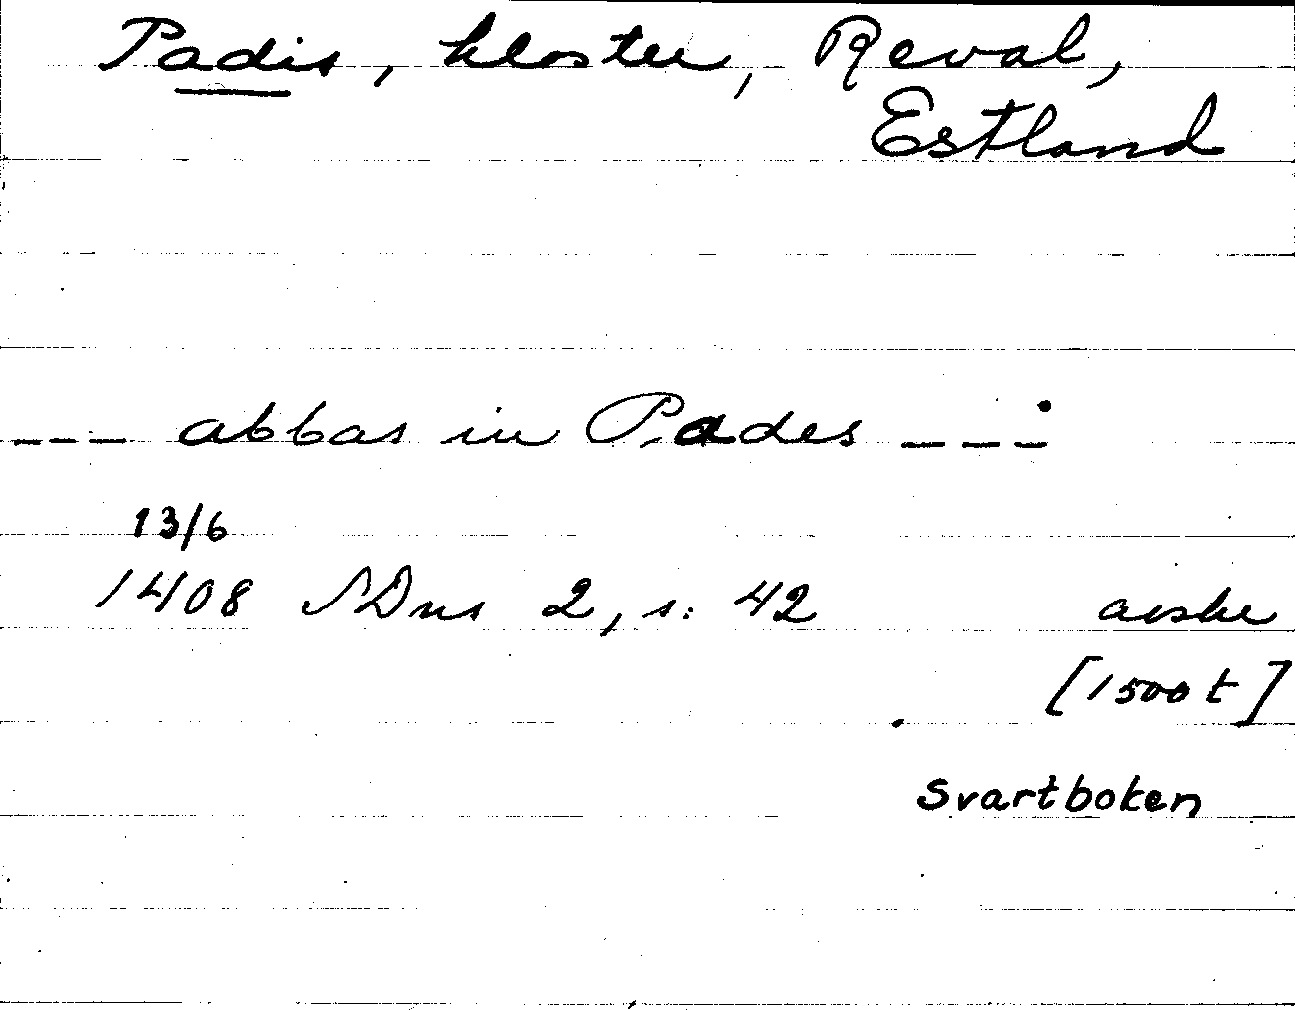 Padis, kloster, Reval,
Estland
--- abbas in Pades ---:
13/6
1408 SDns 2, s. 42 avskr
[1500 t]
Svartboken